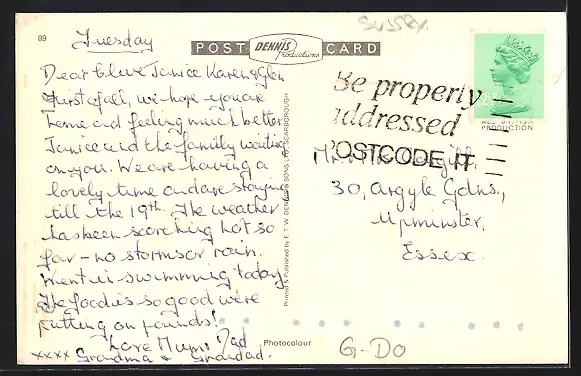 89
Tuesday
Sussex
POST DENNIS Productions CARD
Dear Clive Janice Karen & Glen
Just of all, we hope you are
home and feeling much better
Janice and the family waiting
on you. We are having a
lovely time and are staying
till the 19th. The weather
has been scorching hot so
far - no storms or rain.
Went in swimming today
The food is so good were
putting on pounds!
Love Mum & Dad
xxxx Grandma & Grandad.
Printed & Published by E. T. W. DENNIS & SONS LTD., SCARBOROUGH
Be properly
addressed
POSTCODE IT
PRODUCTION
30, Argyle Gdns.,
Upminster,
Essex.
Photocolour
G-DO